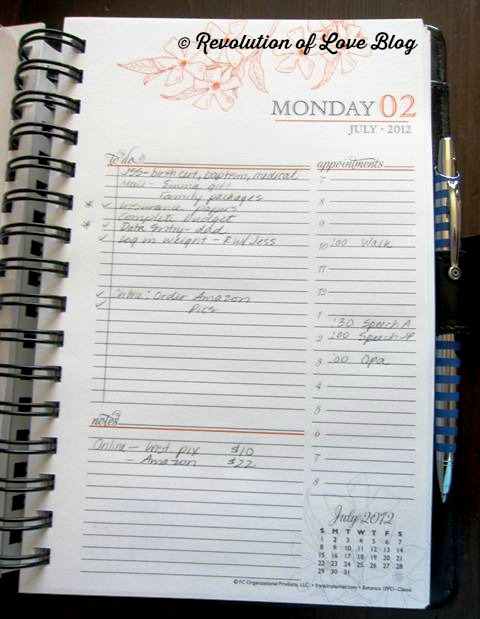 © Revolution of Love Blog
MONDAY 02
JULY • 2012
to do
JSS-birth cert, baptism, medical
Mail - Emma gift
Family packages
* ✓ Insurance Papers
Complete budget
* ✓ Data Entry - dad
✓ Log in weight - Run/Less
✓ Online: Order Amazon
✓ pics
notes
Online - inst. pix $10
- Amazon $22
appointments
7
8
9
10 :00 Walk
11
12
1 :30 Speech A
2 :00 Speech JP
3 :00 Opa
4
5
6
7
8
July 2012
S M T W T F S
1 2 3 4 5 6 7
8 9 10 11 12 13 14
15 16 17 18 19 20 21
22 23 24 25 26 27 28
29 30 31
© FC Organizational Products, LLC. • franklinplanner.com • Botanica 1PPD–Classic